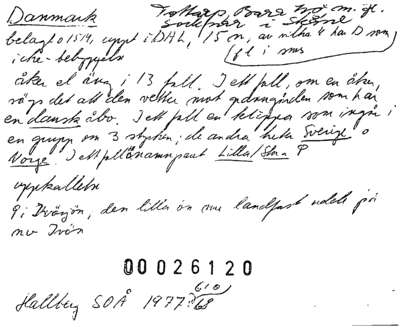 Danmark
Tottarp, Bara Ivö m. fl.
socknar i Skåne
belagt 1514, uppt i DAL, 15 n, av vilka 4 har D som
icke-bebyggelse
åker el äng i 13 fall. I ett fall, om en åker,
sägs det att den vetter mot grannegården som har
en dansk åbo. I ett fall en klippa som ingår i
en grupp om 3 stycken; de andra heta Sverige o
Norge. I ett fall önamn paret Lilla/Stora
uppkallelse
i Ivösjön, den lilla ön nu landfast udde på
nv Ivön
00026120
Hallberg SOÅ 1977
610
68